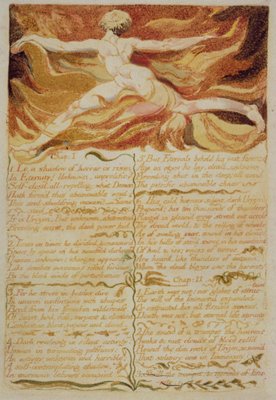 Chap: I
1. Lo, a shadow of horror is risen
In Eternity! Unknown, unprolific!
Self-closd, all-repelling: what Demon
Hath form'd this abominable void
This soul-shudd'ring vacuum?
Urizen, But unknown, abstracted
Brooding secret, the dark power hid.
2. Times on times he divided, & measur'd
Space by space in his ninefold darkness
Unseen, unknown: changes appeard
desolate mountains rifted furious
By the black winds of perturbation
3. For he strove in battles dire
In unseen conflictions with shapes
Bred from his forsaken wilderness,
Of beast, bird, fish, serpent & element
Combustion, blast, vapour and cloud.
4. Dark revolving in silent activity:
Unseen in tormenting passions;
An activity unknown and horrible;
A self-contemplating shadow,
In enormous labours occupied
5. But Eternals beheld his vast forests
Age on ages he lay, clos'd, unknown,
Brooding shut in the deep; all avoid
The petrific abominable chaos
6. His cold horrors silent, dark Urizen
Prepar'd: his ten thousands of thunders
Rang'd in gloom'd array stretch out across
The dread world, & the rolling of wheels
As of swelling seas, sound in his clouds
In his hills of stor'd snows, in his mountains
Of hail & ice; voices of terror,
Are heard, like thunders of autumn,
When the cloud blazes over the harvests
Chap: II.
of attraction
The will of the Immortal expanded
Or contracted his all flexible senses.
Death was not, but eternal life sprung
2. The sound of a trumpet the heavens
Awoke & vast clouds of blood roll'd
Round the dim rocks of Urizen, so nam'd
That solitary one in Immensity
myriads of Eternity,